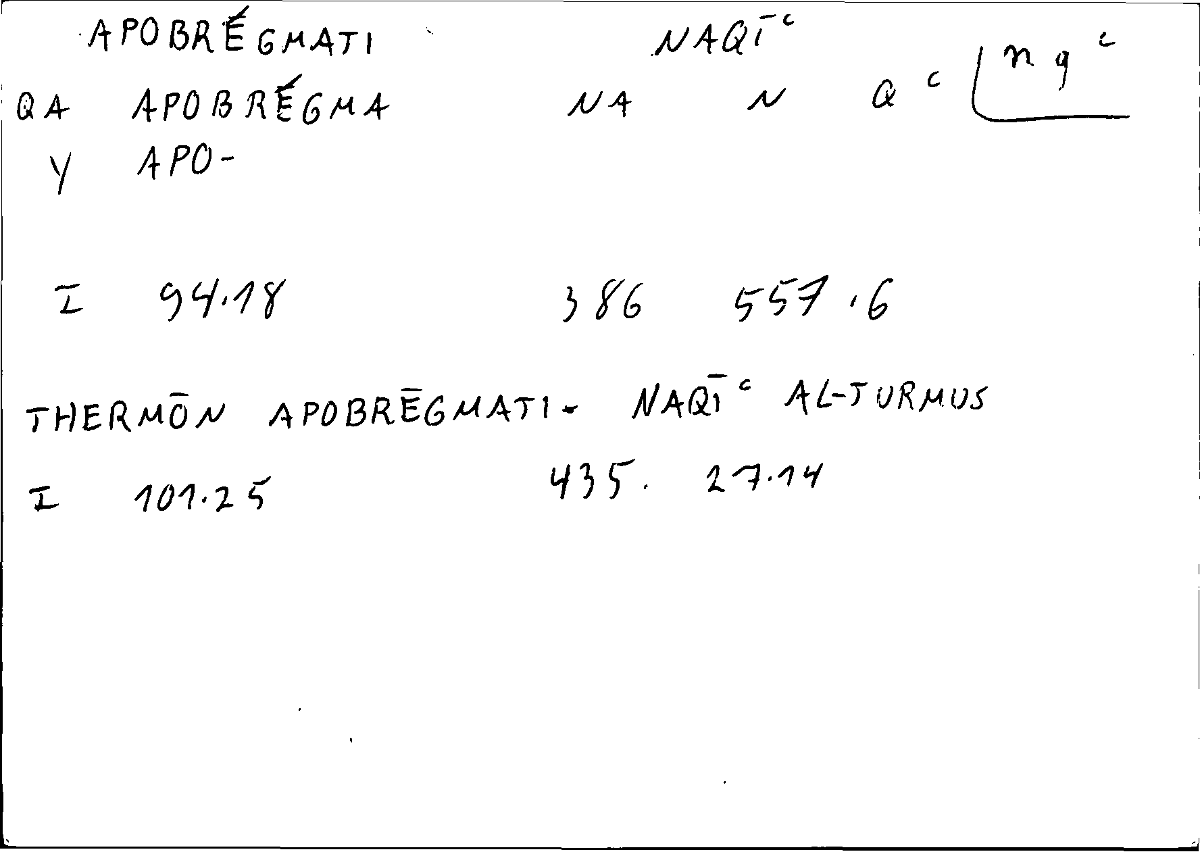 APOBRÉGMATI NAQĪʿ
nqʿ
QA APOBRÉGMA NA N Qʿ
Y APO-
I 94.18 386 557.6
THERMŌN APOBRĒGMATI- NAQĪʿ AL-TURMUS
I 101.25 435. 27.14